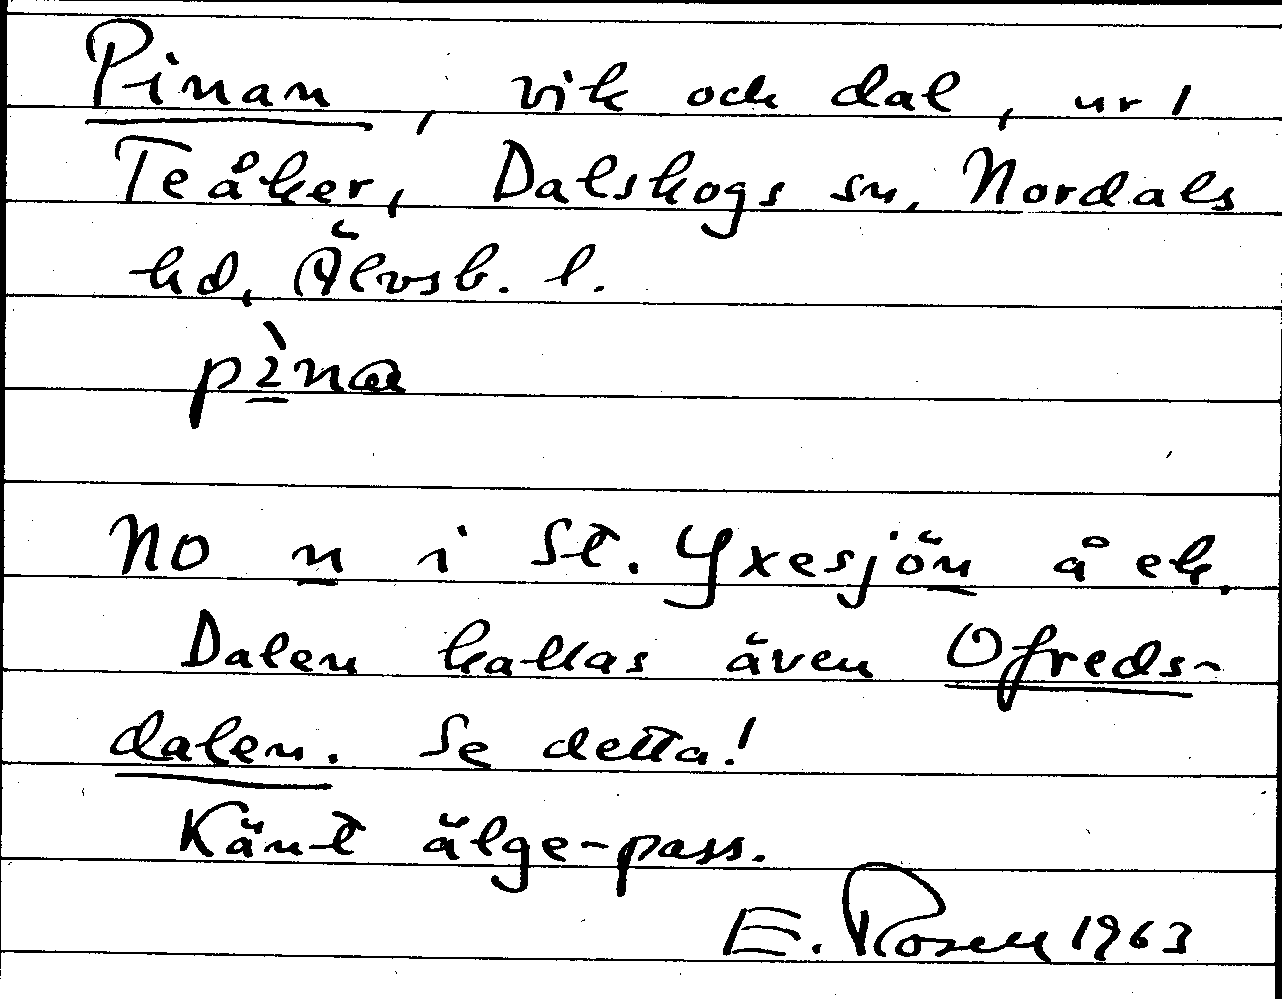 Pinan, vik och dal, ur 1
Teåker, Dalskogs sn, Nordals
hd, Älvsb. l.
pìna
NO n i St. Yxesjön å ek.
Dalen kallas även Ofreds-
dalen. Se detta!
Känt älge-pass.
E. Rosell 1963